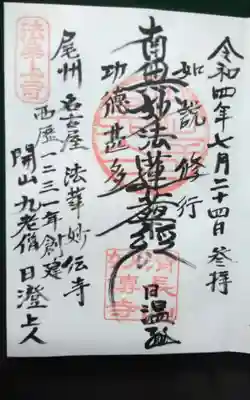 令和四年七月二十四日 参拝
如説修行
南無妙法蓮華経
日温
功德甚多
法華道場
尾州 名古屋 法華妙伝寺
西歴一二三一年創建
開山 九老僧 日澄上人